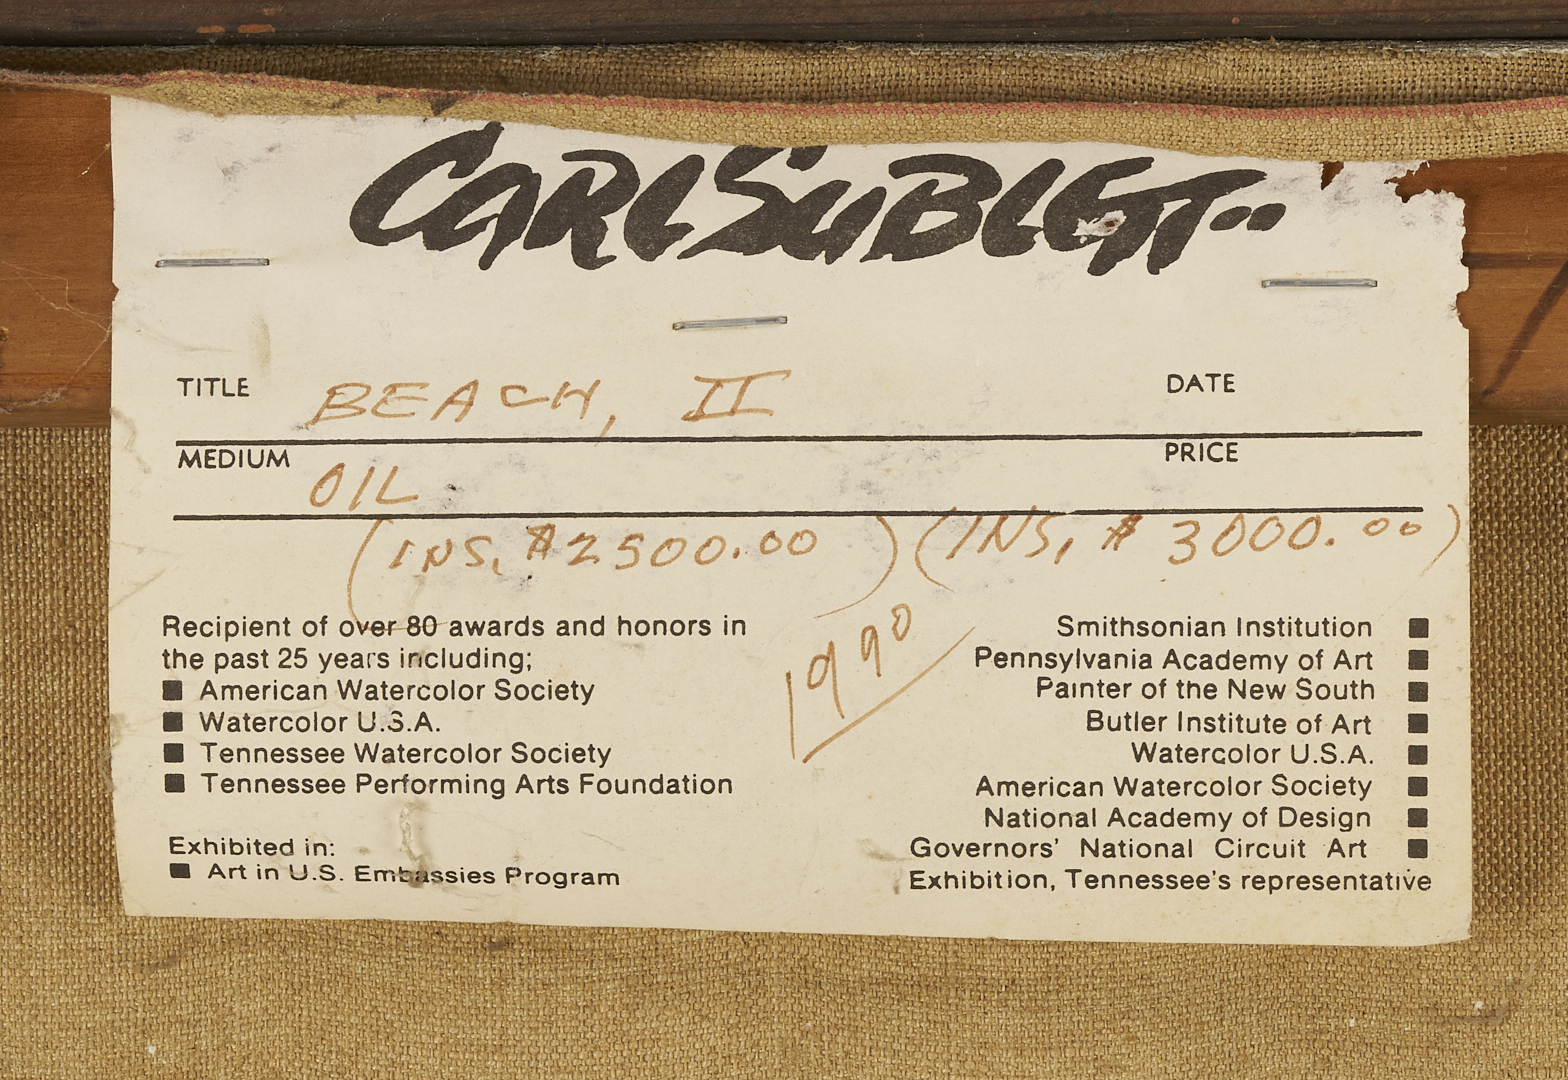 CARL SUBLETT..
TITLE BEACH, II DATE
MEDIUM OIL PRICE
(INS, $2500.00) (INS, $3000.00)
1990
Recipient of over 80 awards and honors in
the past 25 years including;
■ American Watercolor Society
■ Watercolor U.S.A.
■ Tennessee Watercolor Society
■ Tennessee Performing Arts Foundation
Exhibited in:
■ Art in U.S. Embassies Program
Smithsonian Institution ■
Pennsylvania Academy of Art ■
Painter of the New South ■
Butler Institute of Art ■
Watercolor U.S.A. ■
American Watercolor Society ■
National Academy of Design ■
Governors' National Circuit Art ■
Exhibition, Tennessee's representative